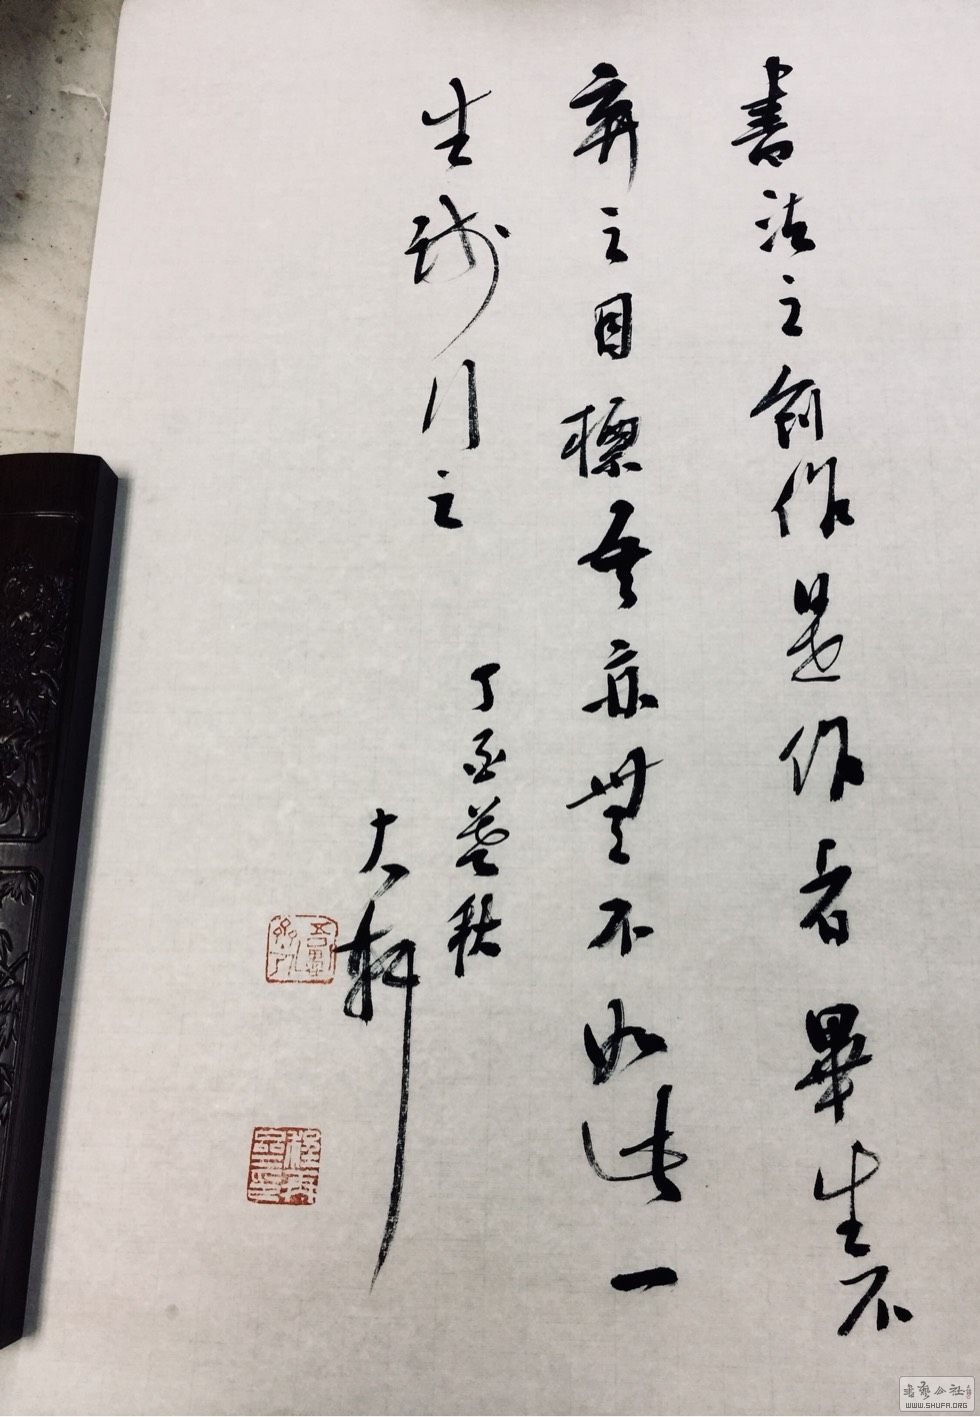 書法之創作是作者畢生不
弃之目標吾亦無不如此一
生踐行之
丁酉暮秋
大軒
書藝公社
WWW.SHUFA.ORG